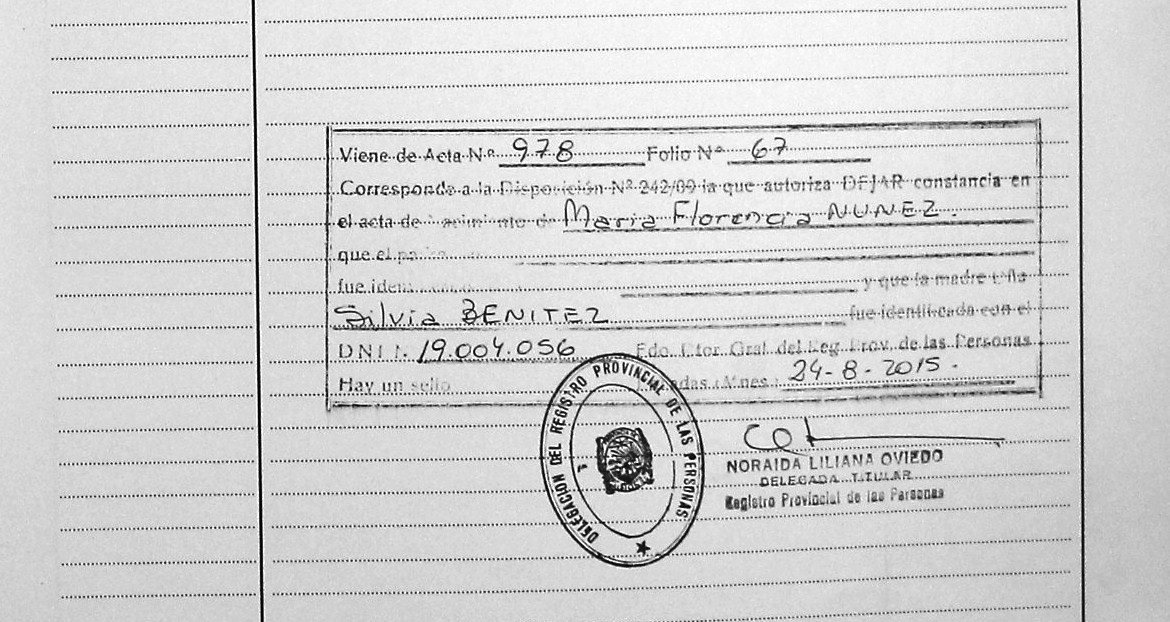 Viene de Acta Nº 978 Folio Nº 67
Corresponde a la Disposición Nº 242/09 la que autoriza DEJAR constancia en
el acta de nacimiento de Maria Florencia NUNEZ.
que el
fue y que la madre
Silvia BENITEZ fue identificada con el
DNI 19.004.056 Fdo. Dtor. Gral. del Reg. Prov. de las Personas
Hay un sello Posadas, Mnes. 24-8-2015.
DELEGACION DEL REGISTRO PROVINCIAL DE LAS PERSONAS
NORAIDA LILIANA OVIEDO
DELEGADA TITULAR
Registro Provincial de las Personas